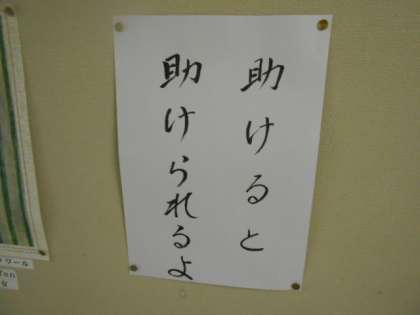 助けると
助けられるよ